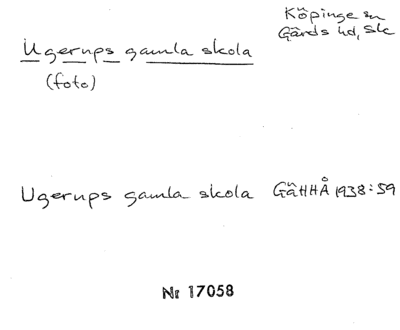 Köpinge sn
Gärds hd, Sk
Ugerups gamla skola
(foto)
Ugerups gamla skola GäHHÅ 1938:59
Nr 17058